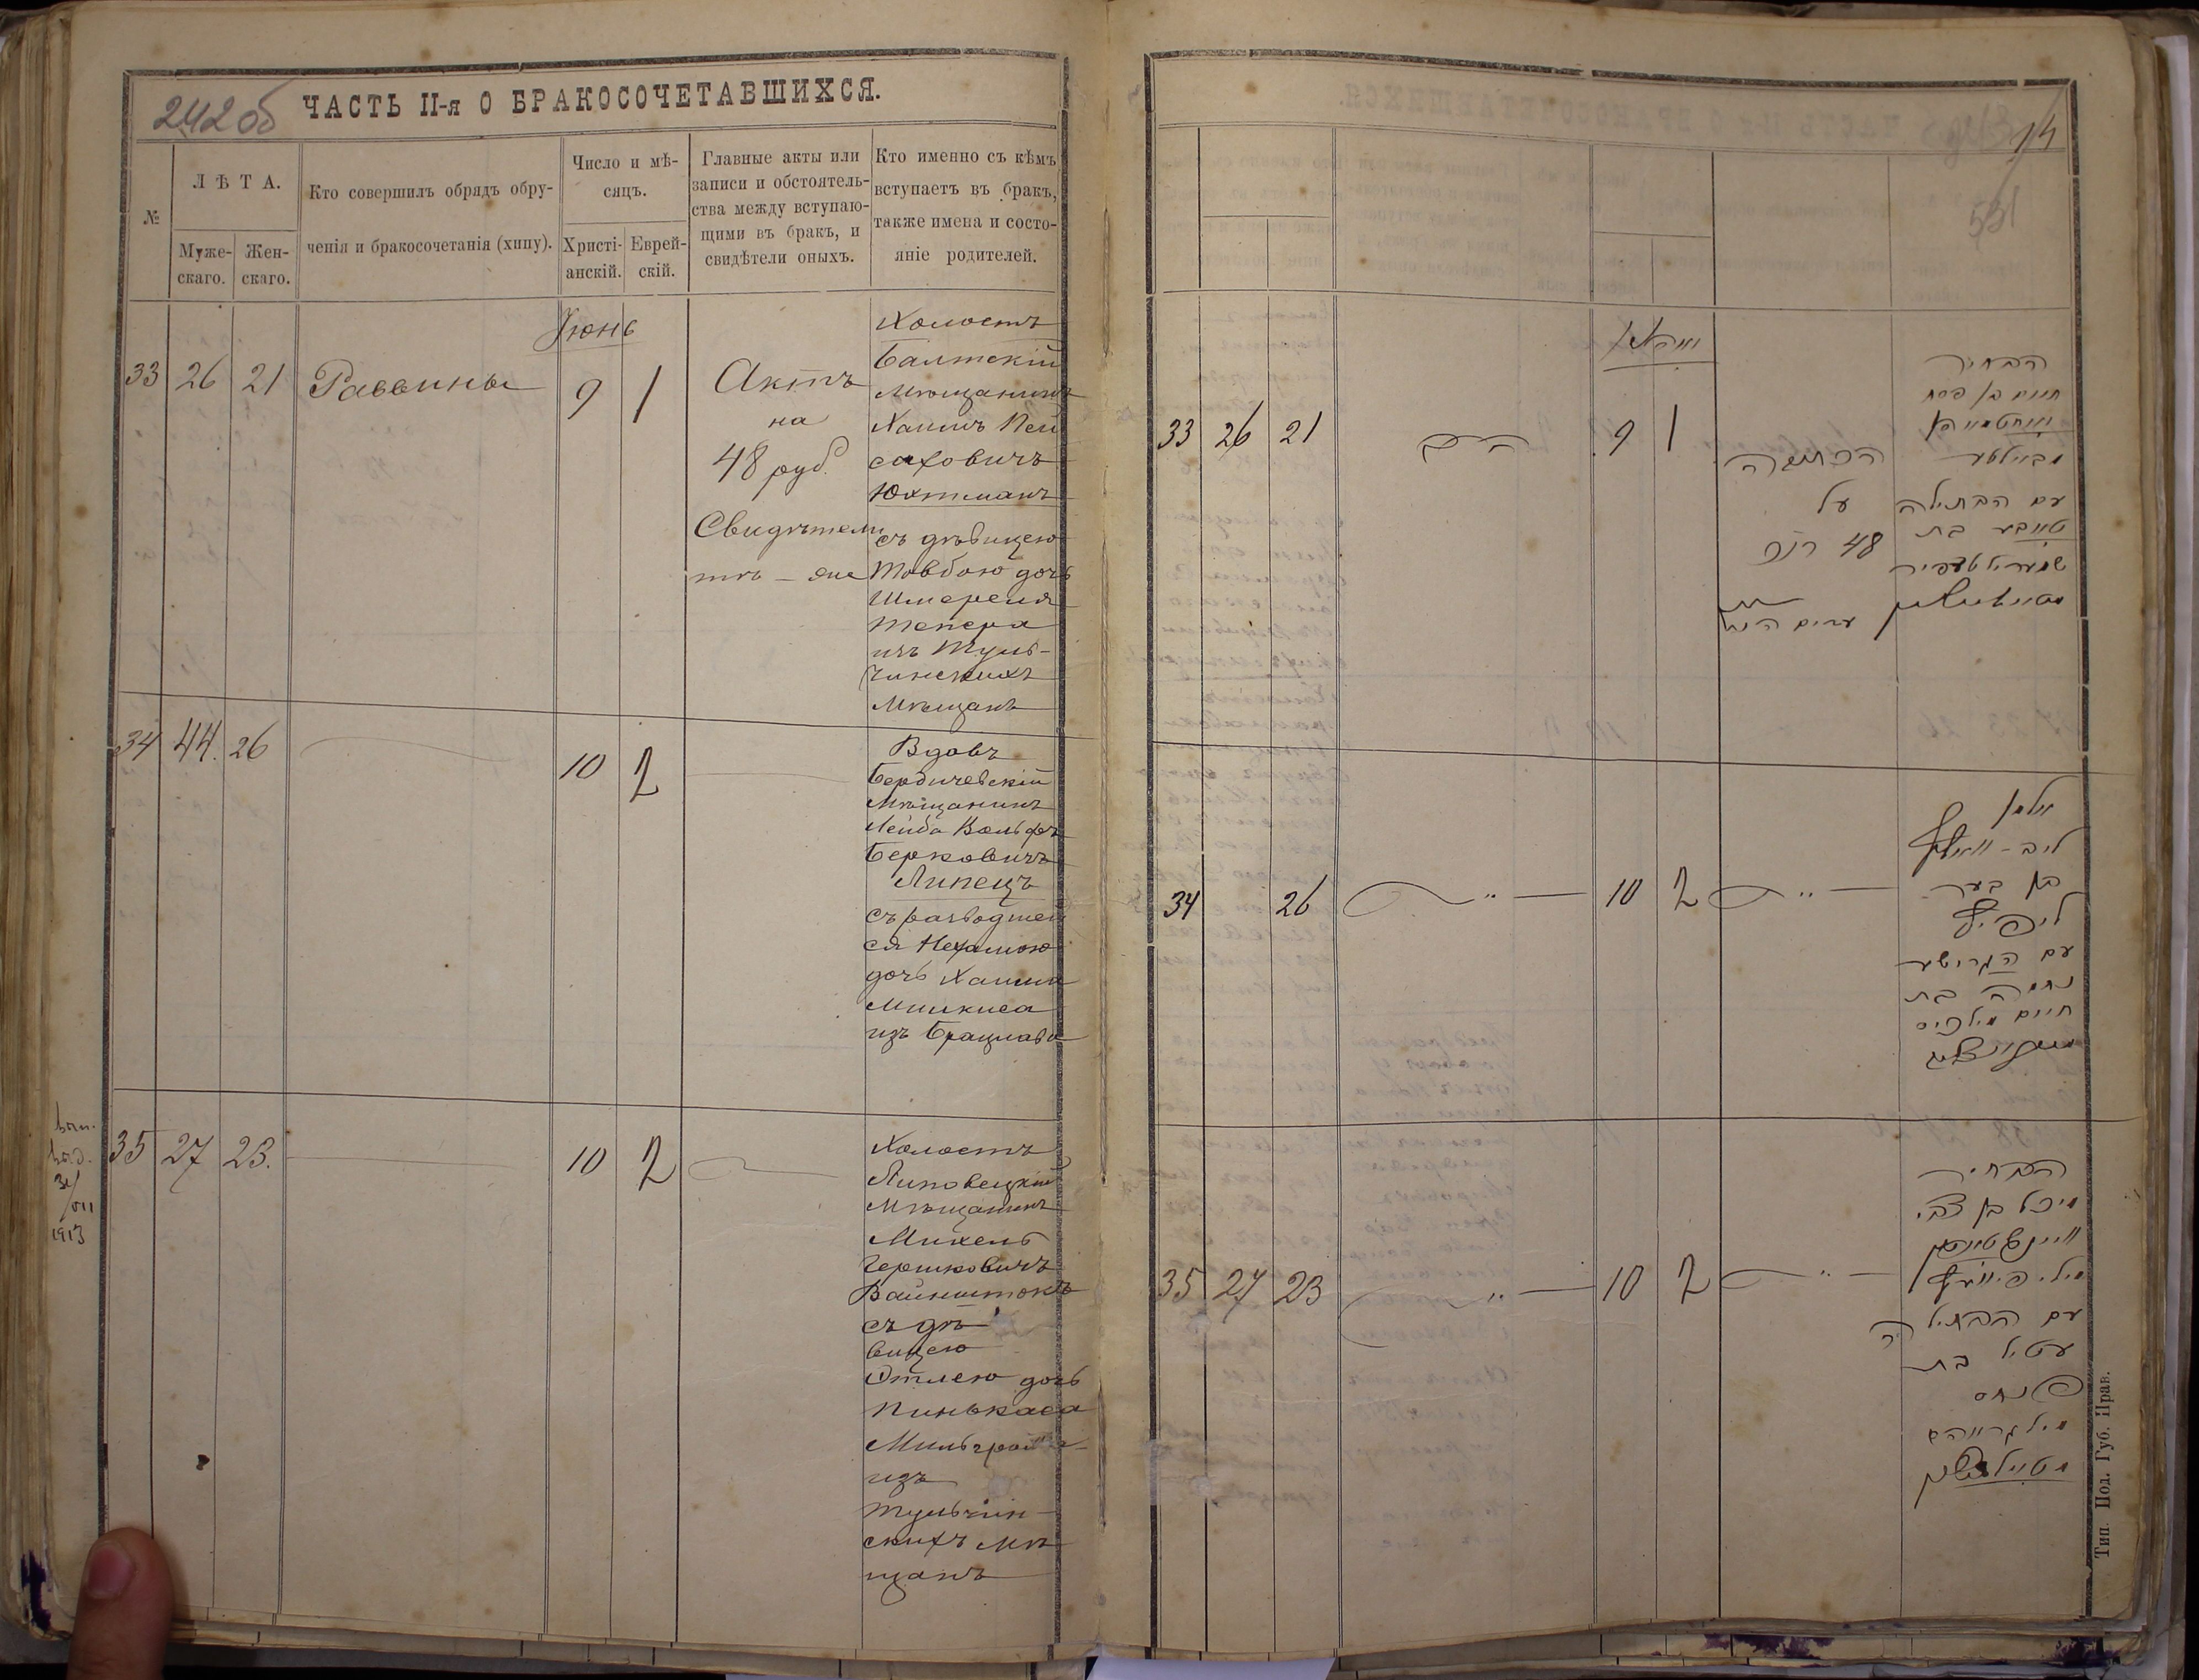 242 об
ЧАСТЬ II-я О БРАКОСОЧЕТАВШИХСЯ.
№
ЛѢТА.
Муже-
скаго.
Жен-
скаго.
Кто совершилъ обрядъ обру-
ченія и бракосочетанія (хипу).
Число и мѣ-
сяцъ.
Христі-
анскій.
Еврей-
скій.
Главные акты или
записи и обстоятель-
ства между вступаю-
щими въ бракъ, и
свидѣтели оныхъ.
Кто именно съ кѣмъ
вступаетъ въ бракъ,
также имена и состо-
яніе родителей.
Юнь
33 26 21 Раввины 9 1
Актъ
на
48 руб.
Свидѣтели
тѣ-же
Холостъ
Балтскій
Мѣщанинъ
Хаимъ Пей
саховичъ
Юхтманъ
съ дѣвицею
Товбою дочь
Шмереля
Тепера
изъ Туль-
чинскихъ
Мѣщанъ
34 44. 26 10 2
Вдовъ
Бердичевскій
Мѣщанинъ
Лейба Вольфъ
Берковичъ
Липецъ
съ разводшей
ся Нехамою
дочь Хаима
из Брацлава
вып.
31/VII
1913
35 27 23. 10 2
Холостъ
Липовецкій
Мѣщанинъ
Михель
Гершковичъ
Вайнштокъ
съ дѣ
вицею
Этлею дочь
Пинькаса
изъ
Тульчин-
скихъ Мѣ
щанъ
14
531
33 26 21 9 1
הבחור
חיים בן פסח
עם הבתולה
טויבע בת
הכתובה
על
48
34 26 " 10 2 "
אלמן
ליב-וואלף
בן בער
ליפיץ
עם הגרושע
נחמה בת
35 27 23 " 10 2 "
הבחור
מיכל בן צבי
עם הבתולה
עטיל בת
פנחס
Тип. Под. Губ. Прав.